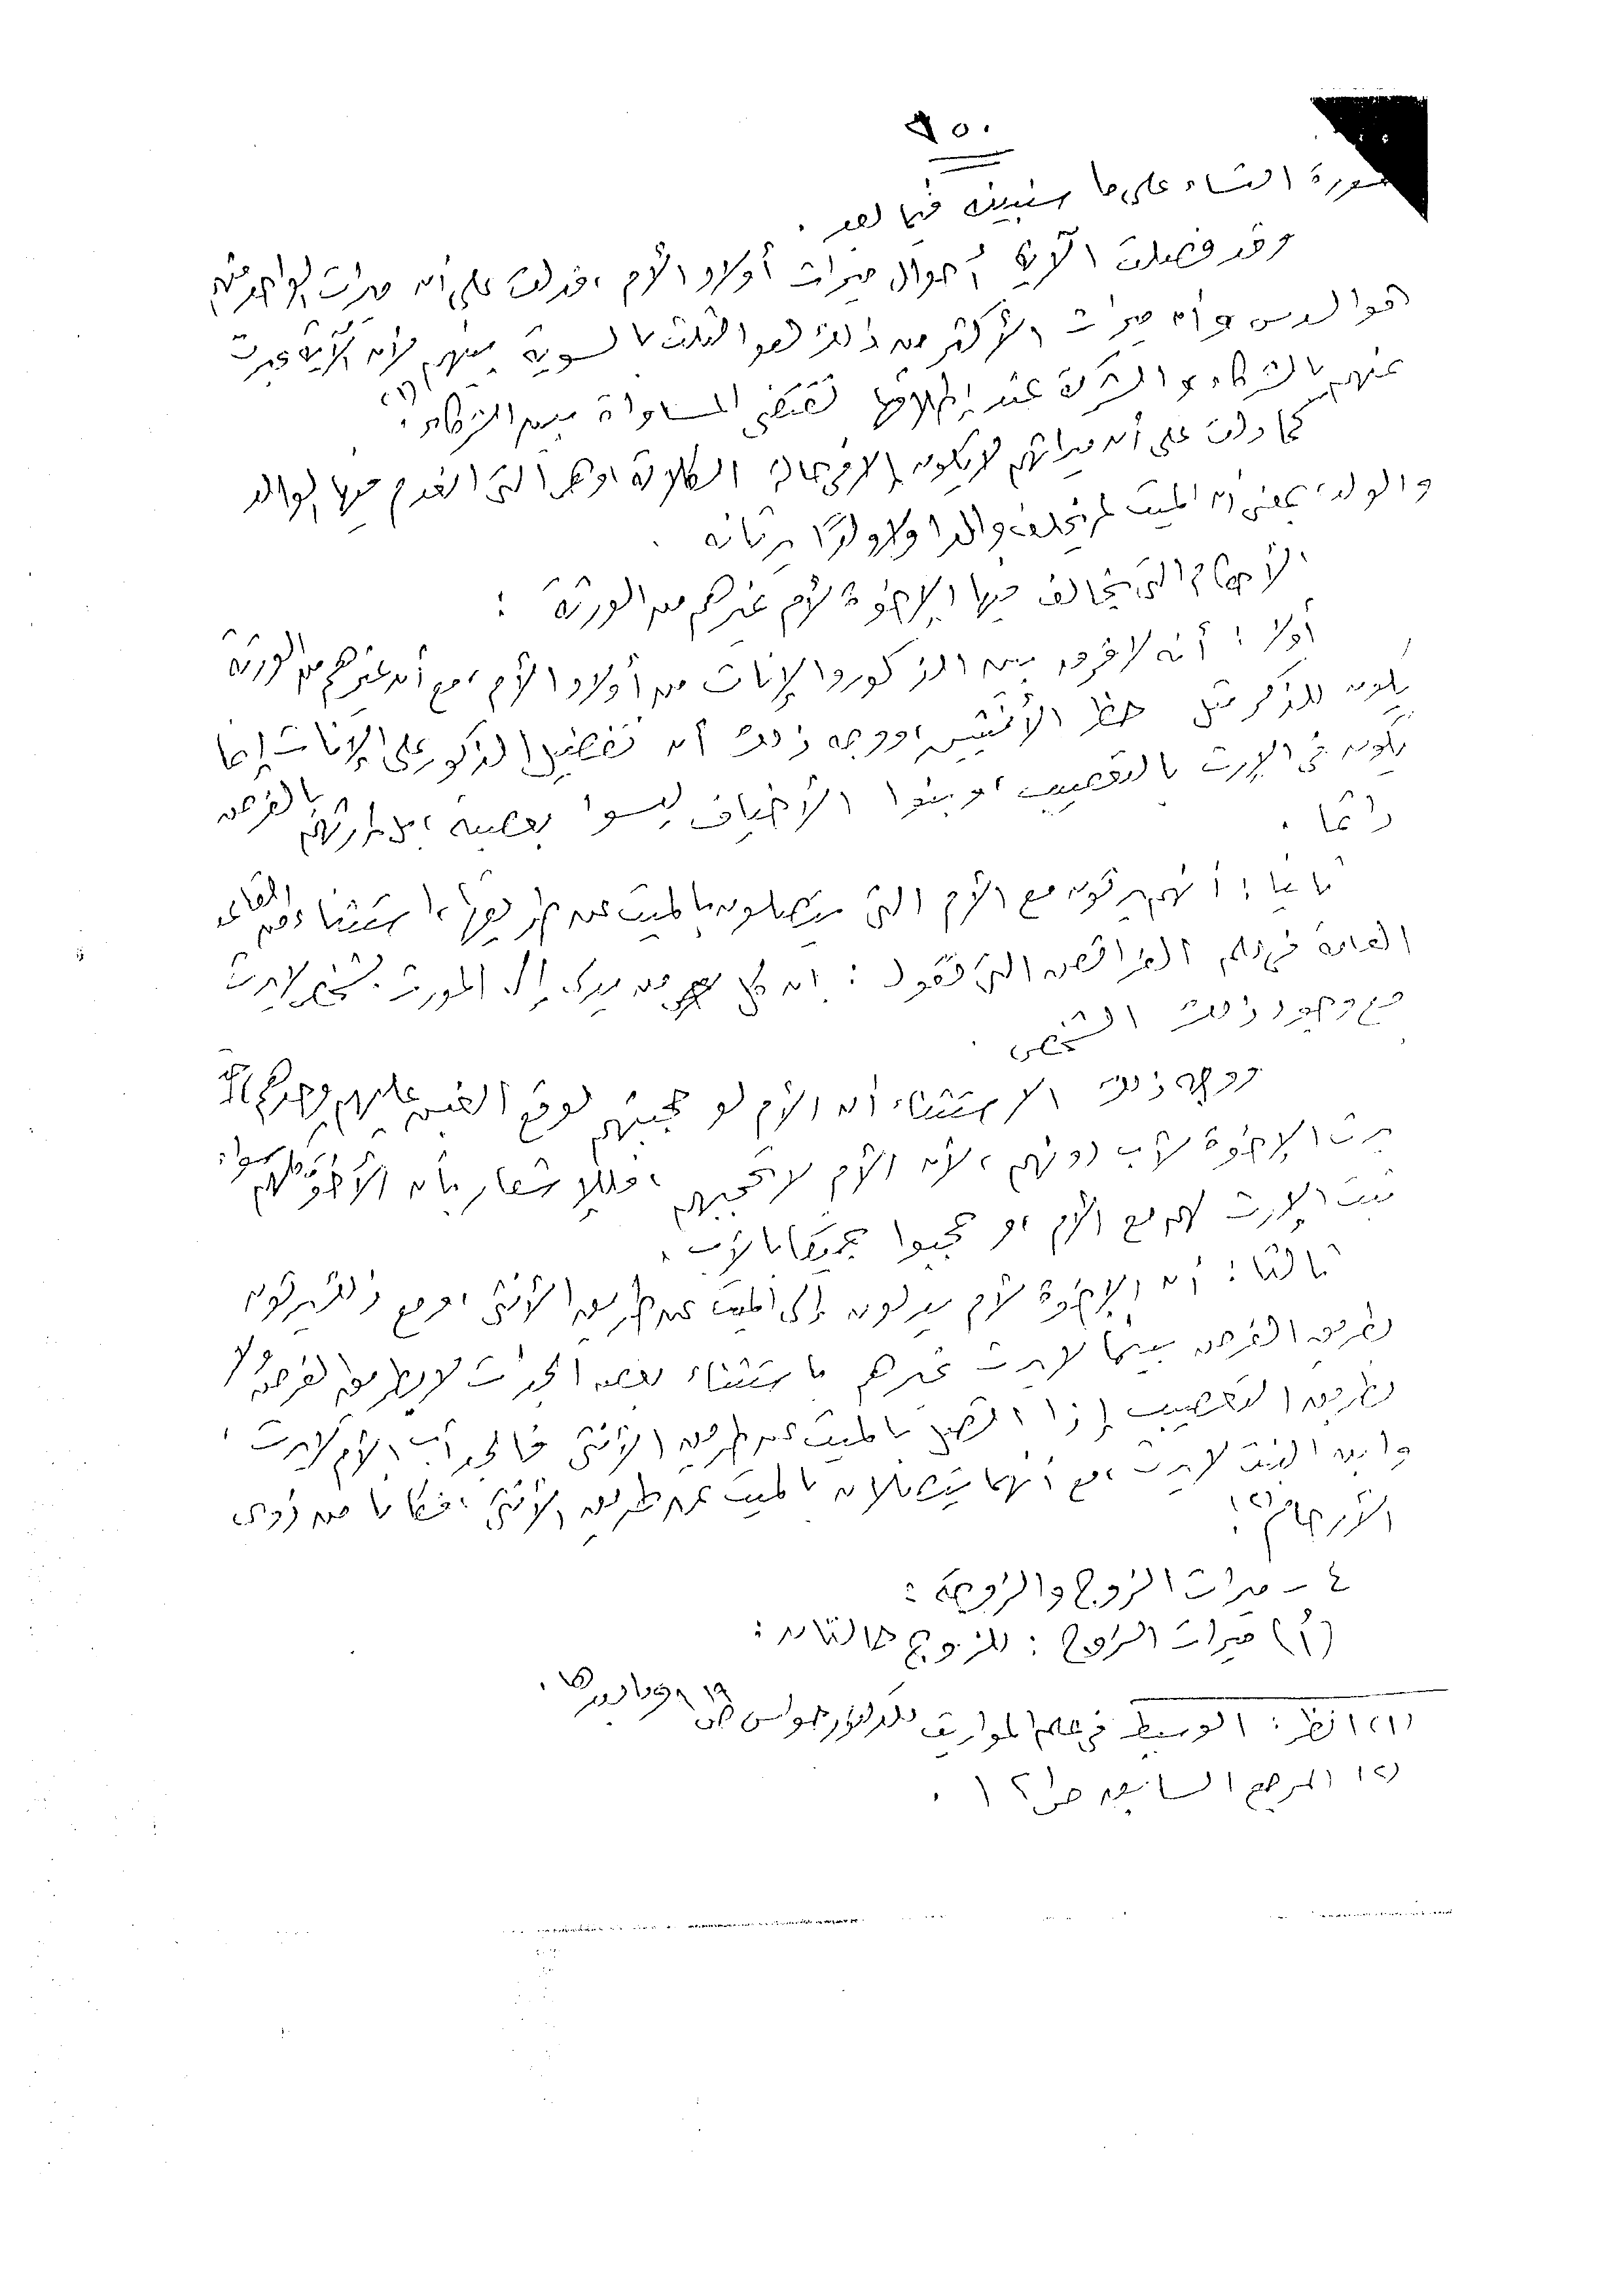 ٩٥٠
سورة النساء على ما سنبينه فيما بعد .
وقد فصلت الآية أحوال ميراث أولاد الأم ، فدلت على أن ميراث الواحد منهم
هو السدس وأن ميراث الأكثر من ذلك هو الثلث بالسوية بينهم لأن الآية عبرت
عنهم بالشركاء والشركة عند إطلاقها تقتضى المساواة بين الشركاء (١) .
كما دلت على أن ميراثهم لا يكون إلا فى حالة الكلالة وهى التى انعدم فيها الوالد
والولد ، بمعنى أن الميت لم يخلف والدا ولا ولدًا يرثانه .
الأحكام التى يخالف فيها الإخوة لأم غيرهم من الورثة :
أولا : أنه لا فرق بين الذكور والإناث من أولاد الأم ، مع أن غيرهم من الورثة
يكون للذكر مثل حظ الأنثيين ، ووجه ذلك أن تفضيل الذكور على الإناث إنما
يكون فى الإرث بالتعصيب ، وبنوا الأخياف ليسوا بعصبة ، بل إرثهم بالفرض
دائما .
ثانيا : أنهم يرثون مع الأم التى يتصلون بالميت عن طريقها ، استثناء من القاعدة
العامة فى علم الفرائض التى تقول : ان كل من يدلى إلى المورث بشخص لا يرث
مع وجود ذلك الشخص .
ووجه ذلك الاستثناء أن الأم لو حجبتهم لوقع الغبن عليهم وحدهم إذ
يرث الإخوة لأب دونهم ، لأن الأم لا تحجبهم ، فللإشعار بأن الأخوة كلهم سواء
ثبت الإرث لهم مع الأم ، وحجبوا جميعا بالأب .
ثالثا : أن الإخوة لأم يدلون إلى الميت عن طريق الأنثى ، ومع ذلك يرثون
بطريق الفرض بينما لا يرث غيرهم باستثناء بعض الجدات لا بطريق الفرض ولا
بطريق التعصيب إذا اتصل بالميت عن طريق الأنثى فالجد أب الأم لا يرث ،
وابن البنت لا يرث ، مع أنهما يتصلان بالميت عن طريق الأنثى ، فكانا من ذوى
الأرحام (٢) .
٤ – ميراث الزوج والزوجة :
(أ) ميراث الزوج : للزوج حالتان :
(١) انظر : الوسيط فى علم المواريث للدكتور حواس ص ١٩ وما بعدها .
(٢) المرجع السابق ص ١٢١ .